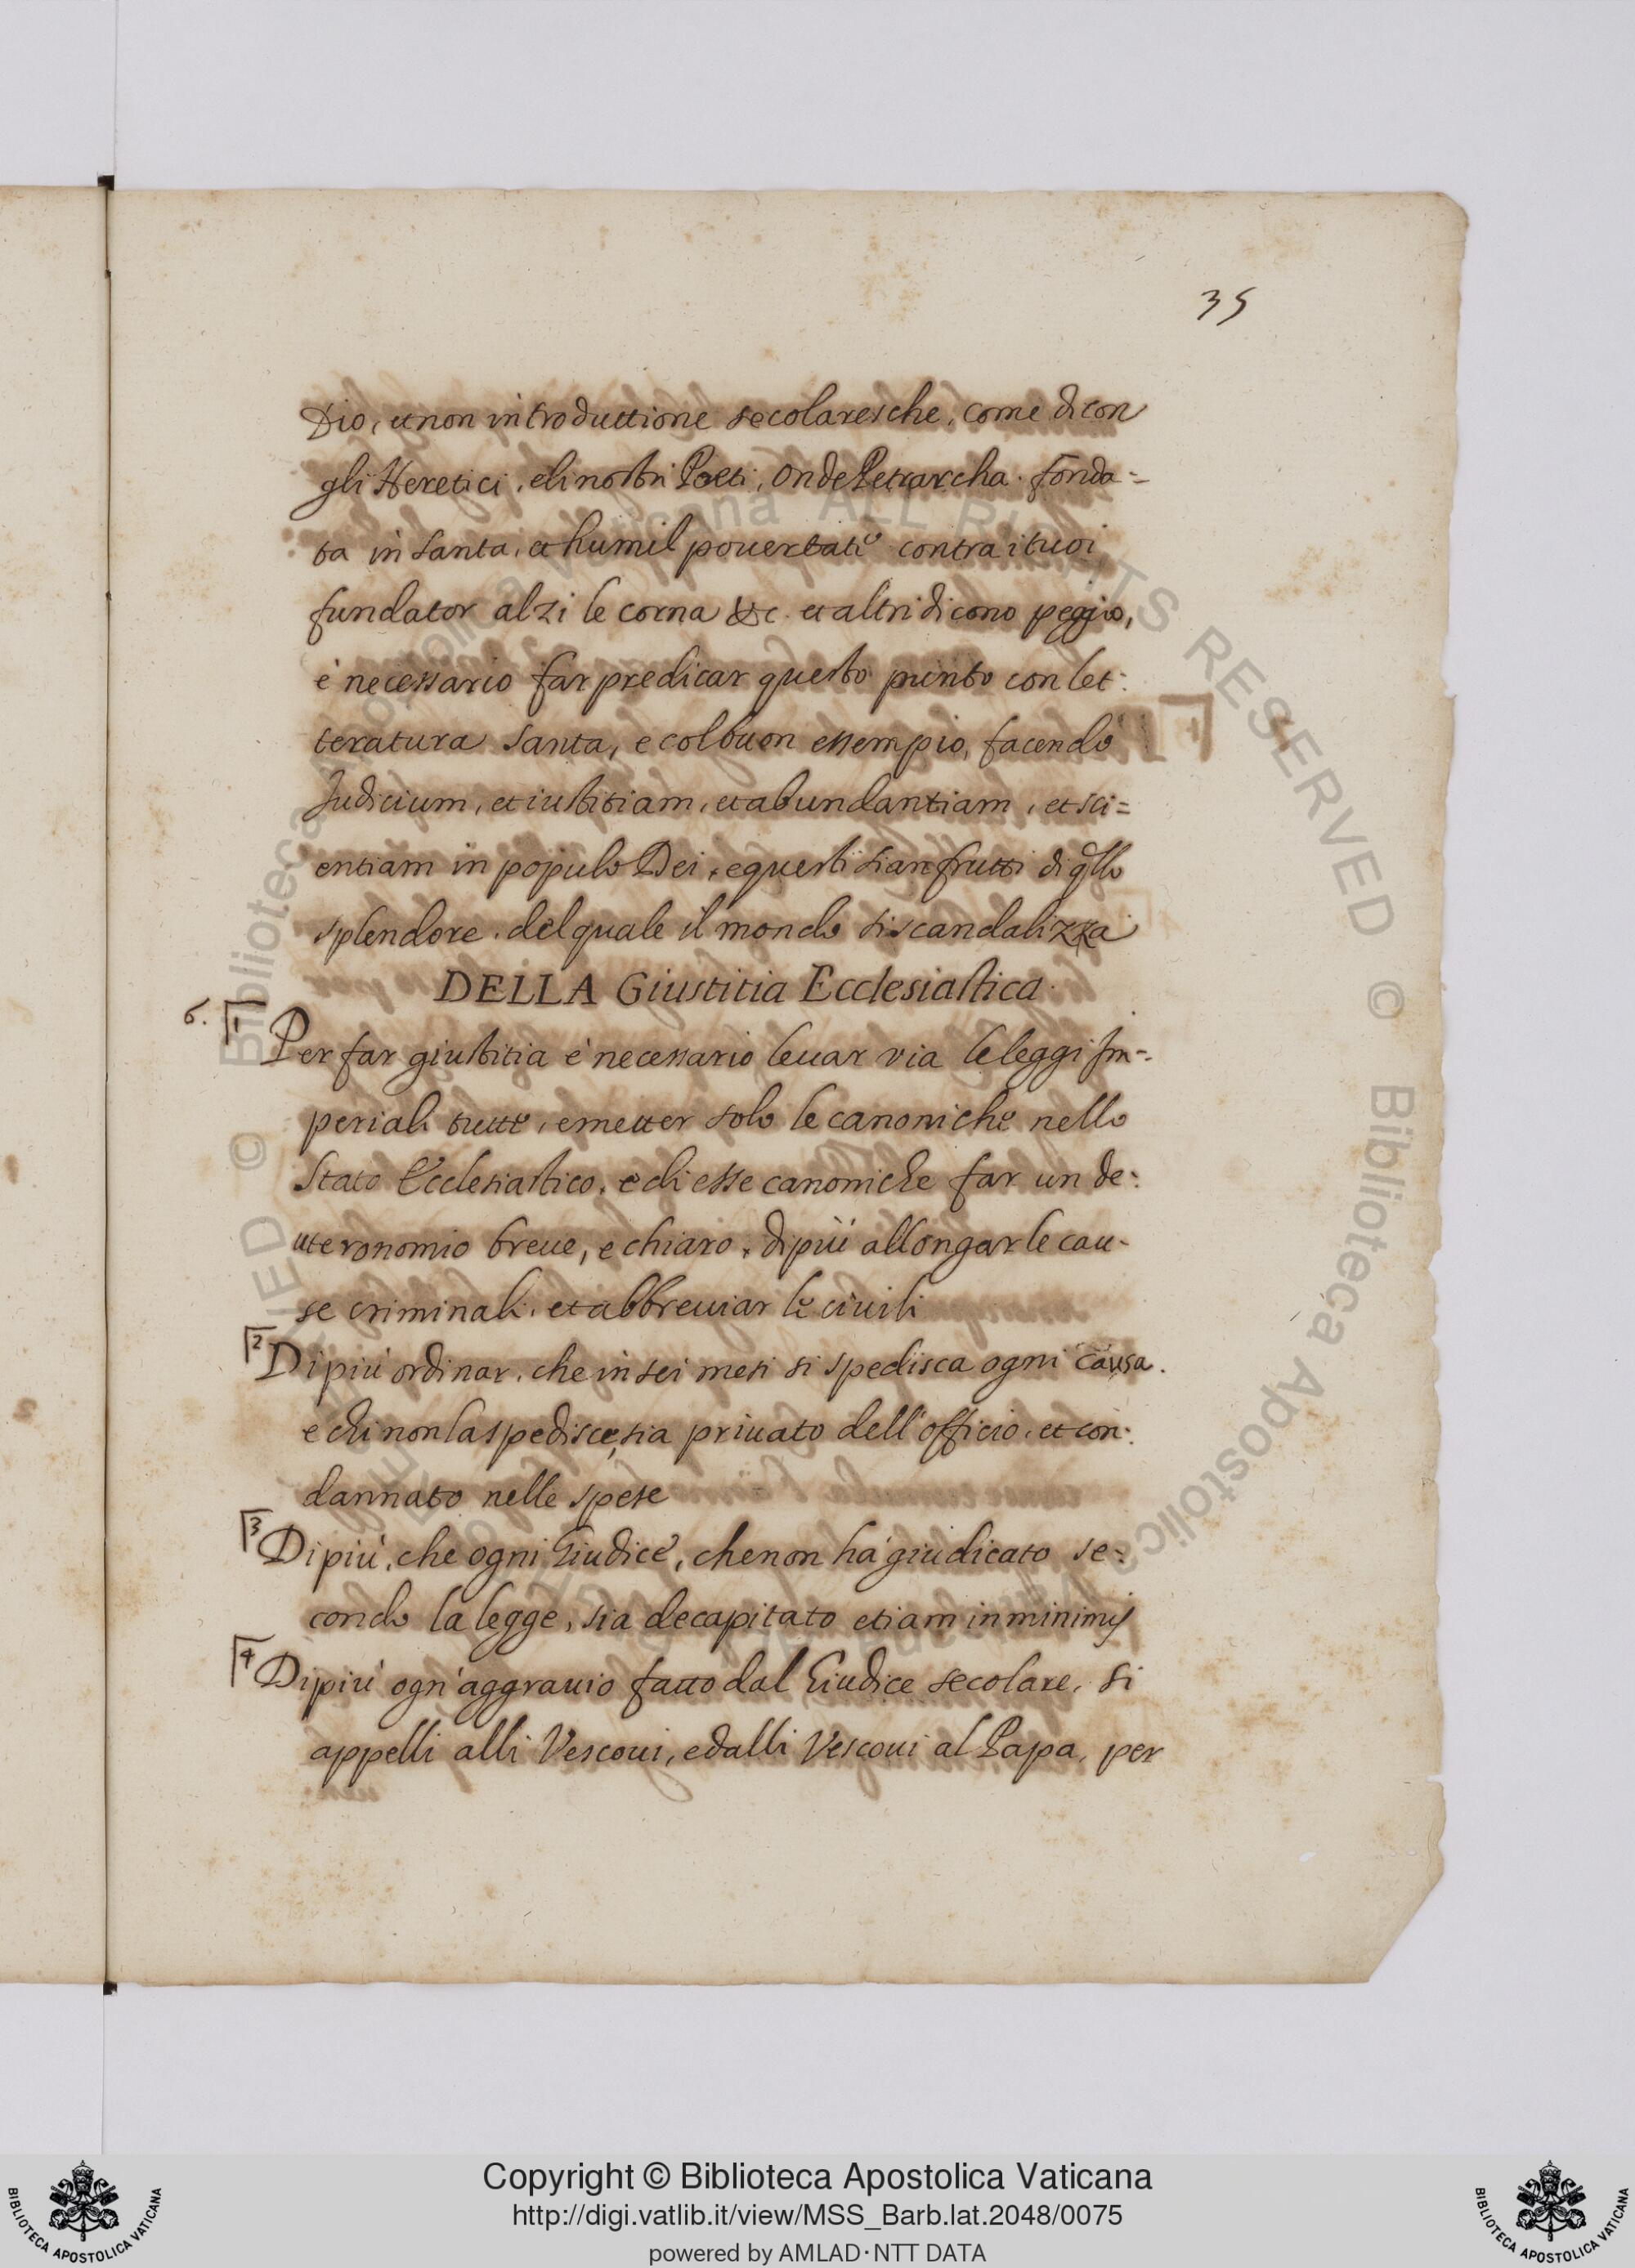 35
Dio, et non introduttione secolaresche, come dicon
gli Heretici, e li nostri Poeti, onde Petrarcha. fonda=
ta in santa, et humil povertate contra i tuoi
fundator alzi le corna &c. et altri dicono peggio,
è necessario far predicar questo punto con let:
teratura santa, e col buon essempio, facendo
Iudicium, et iustitiam, et abundantiam, et sci=
entiam in populo Dei, e questi sian frutti di qllo
splendore, del quale il mondo si scandalizza
DELLA Giustitia Ecclesiastica.
6. 1 Per far giustitia è necessario leuar via le leggi Im=
periali tutte, e metter solo le canoniche nello
Stato Ecclesiastico, e di esse canoniche far un de:
uteronomio breue, e chiaro, di più allongar le cau-
se criminali, et abbreuiar le ciuili
2 Di più ordinar, che in sei mesi si spedisca ogni causa.
e chi non la spedisce, sia priuato dell'officio, et con:
dannato nelle spese
3 Di più, che ogni Giudice, che non hà giudicato se:
condo la legge, sia decapitato etiam in minimis
4 Di più ogn'aggrauio fatto dal Giudice secolare, si
appelli alli Vescoui, e dalli Vescoui al Papa, per
Copyright © Biblioteca Apostolica Vaticana
http://digi.vatlib.it/view/MSS_Barb.lat.2048/0075
powered by AMLAD·NTT DATA
BIBLIOTECA APOSTOLICA VATICANA
BIBLIOTECA APOSTOLICA VATICANA